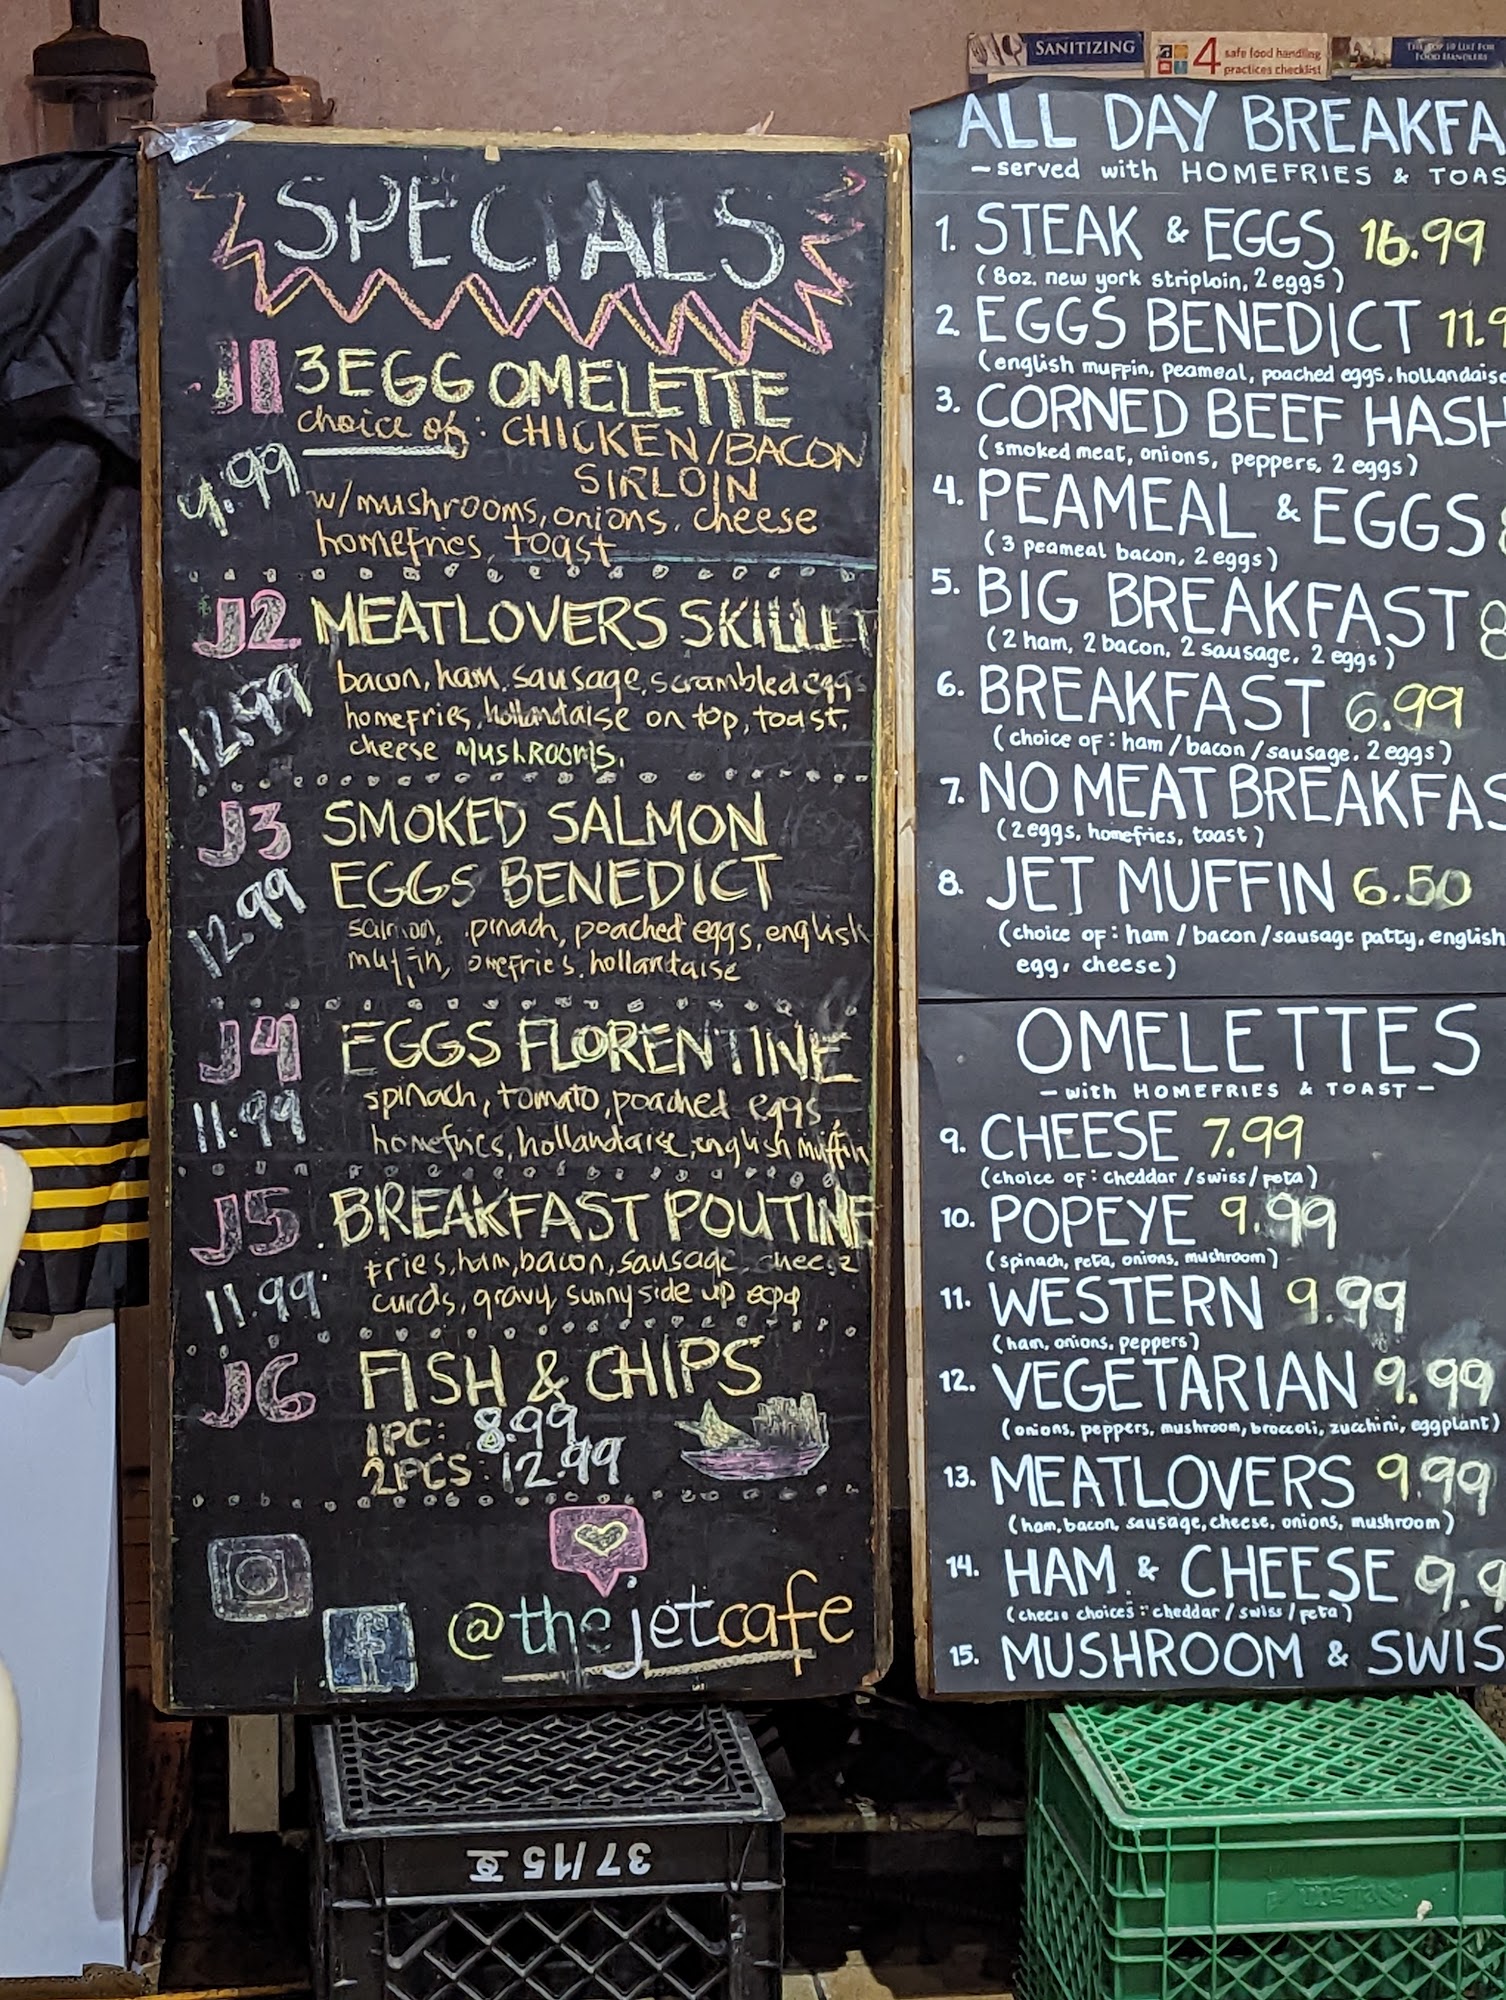 SANITIZING
4 safe food handling
practices checklist
THE TOP 10 LIST FOR
FOOD HANDLERS
SPECIALS
J1 3 EGG OMELETTE
choice of: CHICKEN/BACON
SIRLOIN
9.99
w/mushrooms, onions, cheese
homefries, toast
J2 MEATLOVERS SKILLET
12.99
bacon, ham, sausage, scrambled eggs
homefries, hollandaise on top, toast,
cheese MUSHROOMS.
J3 SMOKED SALMON
EGGS BENEDICT
12.99
salmon, pinach, poached eggs, english
muffin, omefries, hollandaise
J4 EGGS FLORENTINE
11.99
spinach, tomato, poached eggs
homefries, hollandaise, english muffin
J5 BREAKFAST POUTINE
11.99
fries, ham, bacon, sausage,
curds, gravy, sunny side up
J6 FISH & CHIPS
1PC: 8.99
2PCS: 12.99
@thejetcafe
37/15
ALL DAY BREAKFA
- served with HOMEFRIES & TOAS
1. STEAK & EGGS 16.99
(8oz. new york striploin, 2 eggs)
2. EGGS BENEDICT 11.9
(english muffin, peameal, poached eggs, hollandaise
3. CORNED BEEF HASH
(smoked meat, onions, peppers, 2 eggs)
4. PEAMEAL & EGGS
(3 peameal bacon, 2 eggs)
5. BIG BREAKFAST 8
(2 ham, 2 bacon, 2 sausage, 2 eggs)
6. BREAKFAST 6.99
(choice of: ham/bacon/sausage, 2 eggs)
7. NO MEAT BREAKFAS
(2 eggs, homefries, toast)
8. JET MUFFIN 6.50
(choice of: ham/bacon/sausage patty, english
egg, cheese)
OMELETTES
- with HOMEFRIES & TOAST -
9. CHEESE 7.99
(choice of: cheddar/swiss/feta)
10. POPEYE 9.99
(spinach, feta, onions, mushroom)
11. WESTERN 9.99
(ham, onions, peppers)
12. VEGETARIAN 9.99
(onions, peppers, mushroom, broccoli, zucchini, eggplant)
13. MEATLOVERS 9.99
(ham, bacon, sausage, cheese, onions, mushroom)
14. HAM & CHEESE 9.9
(cheese choices: cheddar/swiss/feta)
15. MUSHROOM & SWIS